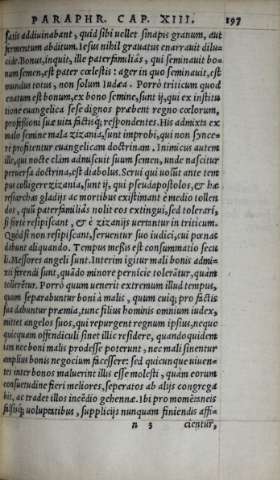 PARAPHR. CAP. XIII. 197
satis addiuinabant, quid sibi uellet sinapis granum, aut
fermentum abditum. Iesus nihil grauatus enarrauit dilu-
cide. Bonus, inquit, ille paterfamiliâs, qui seminauit bo-
num semen, est pater cœlestis: ager in quo seminauit, est
mundus totus, non solum Iudæa. Porrò triticum quod
enatum est bonum, ex bono semine, sunt ij, qui ex institu
tione euangelica sese dignos præbent regno cœlorum,
professioni suæ uitæ factisq; respondentes. His admixta ex
malo semine mala zizania, sunt improbi, qui non synce-
rè profitentur euangelicam doctrinam. Inimicus autem
ille, qui nocte clàm admiscuit suum semen, unde nascitur
peruersa doctrina, est diabolus. Serui qui uolût ante tem
pus colligere zizania, sunt ij, qui pseudapostolos, & hæ-
resiarchas gladijs ac mortibus existimant è medio tollen
dos, quũ paterfamiliâs nolit eos extingui, sed tolerari,
si fortè resipiscant, & è zizanijs uertantur in triticum.
Quòd si non resipiscant, seruentur suo iudici, cui pœnas
dabunt aliquando. Tempus messis est consummatio secu
li. Messores angeli sunt. Interim igitur mali bonis admi-
xti ferendi sunt, quãdo minore pernicie tolerãtur, quàm
tollerẽtur. Porrò quum uenerit extremum illud tempus,
quum separabuntur boni à malis, quum cuiq; pro factis
sua dabuntur præmia, tunc filius hominis omnium iudex,
mittet angelos suos, qui repurgent regnum ipsius, neque
quicquam offendiculi sinet illic residere, quandoquidem
iam nec boni malis prodesse poterunt, nec mali sinentur
amplius bonis negocium facessere: sed quicunque uiuen-
tes inter bonos maluerint illis esse molesti, quàm eorum
consuetudine fieri meliores, seperatos ab alijs congrega
bit, ac tradet illos incẽdio gehennæ. Ibi pro momẽtaneis
falsisq; uoluptatibus, supplicijs nunquam finiendis affi-
n 3 cientur,